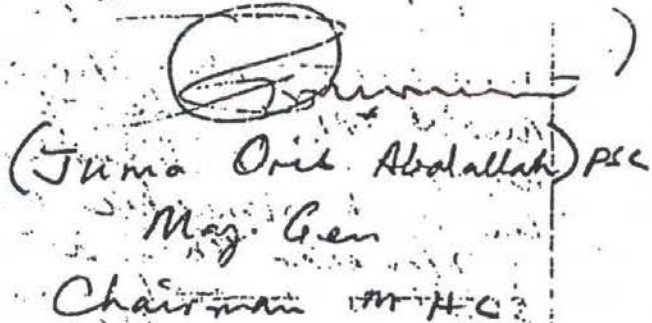 (Juma Oris Abdallah) PSC
Maj. Gen
Chairman M H C